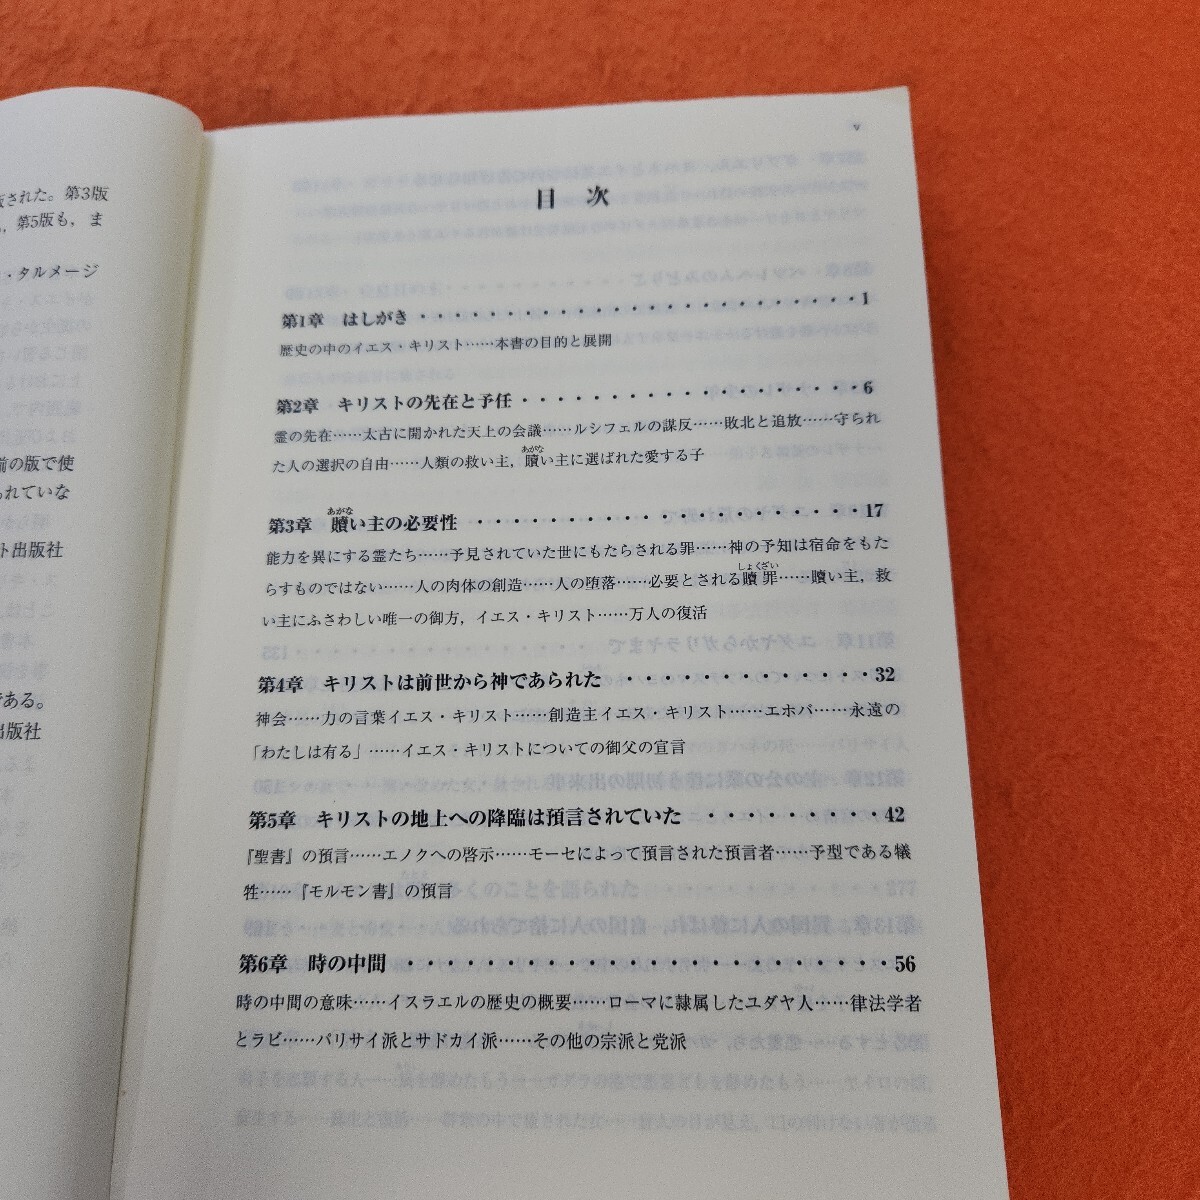 された。第3版
第5版も，ま
・タルメージ
前の版で使
れていな
ト出版社
である。
出版社
v
目次
第1章　はしがき・・・・・・・・・・・・・・・・・・・・・・・・・・1
歴史の中のイエス・キリスト……本書の目的と展開
第2章　キリストの先在と予任・・・・・・・・・・・・・・・・・・・・6
霊の先在……太古に開かれた天上の会議……ルシフェルの謀反……敗北と追放……守られ
た人の選択の自由……人類の救い主，贖い主に選ばれた愛する子
あがな
第3章　贖い主の必要性・・・・・・・・・・・・・・・・・・・・・・17
あがな
能力を異にする霊たち……予見されていた世にもたらされる罪……神の予知は宿命をもた
らすものではない……人の肉体の創造……人の堕落……必要とされる贖罪……贖い主，救
しょくざい
い主にふさわしい唯一の御方，イエス・キリスト……万人の復活
第4章　キリストは前世から神であられた・・・・・・・・・・・・・・32
神会……力の言葉イエス・キリスト……創造主イエス・キリスト……エホバ……永遠の
「わたしは有る」……イエス・キリストについての御父の宣言
第5章　キリストの地上への降臨は預言されていた・・・・・・・・・42
『聖書』の預言……エノクへの啓示……モーセによって預言された預言者……予型である犠
牲……『モルモン書』の預言
第6章　時の中間・・・・・・・・・・・・・・・・・・・・・・・・・56
時の中間の意味……イスラエルの歴史の概要……ローマに隷属したユダヤ人……律法学者
とラビ……パリサイ派とサドカイ派……その他の宗派と党派